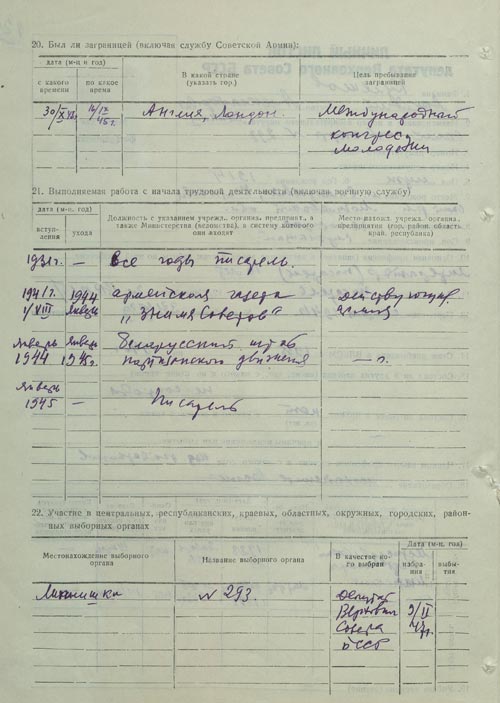 20. Был ли заграницей (включая службу Советской Армии):
дата (м-ц и год)
с какого времени
по какое время
В какой стране (указать гор.)
Цель пребывания заграницей
Англия, Лондон.
Международный
конгресс
молодежи
21. Выполняемая работа с начала трудовой деятельности (включая военную службу)
дата (м-ц, год)
вступления
ухода
Должность с указанием учрежд. организ. предприят., а также Министерства (ведомства), в систему которого они входят
Местонахожд. учрежд. организ. предприятия (гор. район. область край, республика)
1931г. — Все годы писатель.
1941г. 1944 армейская газета действующая
1/VIII январь „Знамя Советов" армия
Январь Январь Белорусский штаб
1944 1945г. партизанского движения
Январь
1945 — Писатель
22. Участие в центральных, республиканских, краевых, областных, окружных, городских, районных выборных органах
Местонахождение выборного органа
Название выборного органа
В качестве кого выбран
Дата (м-ц, год)
избрания
выбытия
№ 293.
Депутат
Верховного 9/II
Совета 47г.
БССР